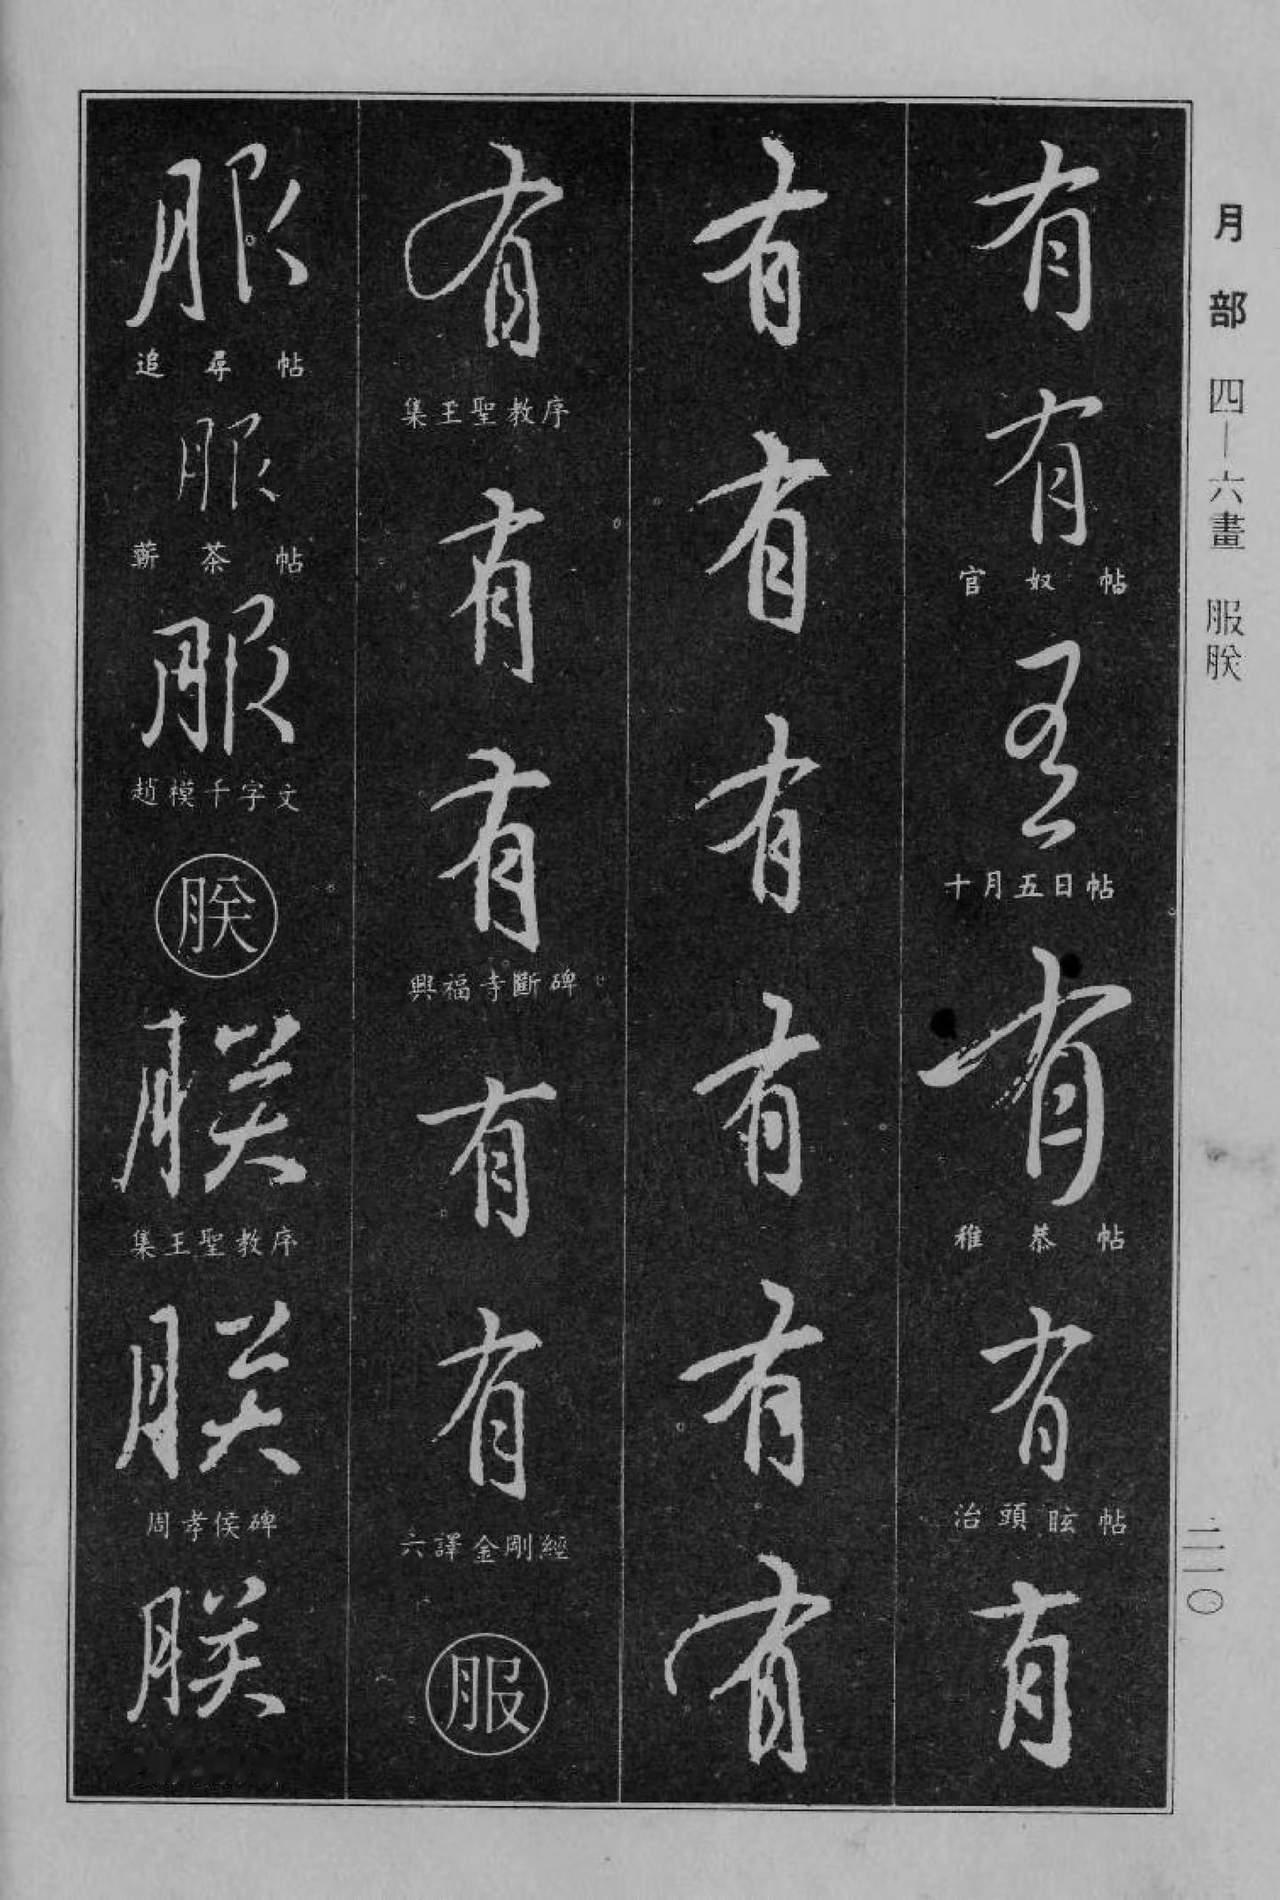 月部 四—六畫 服朕
二一〇
有
有
官奴帖
有
十月五日帖
有
稚恭帖
有
治頭眩帖
有
有
有
有
有
有
有
有
集王聖教序
有
有
興福寺斷碑
有
有
六譯金剛經
服
服
追尋帖
服
蘄茶帖
服
趙模千字文
朕
朕
集王聖教序
朕
周孝侯碑
朕